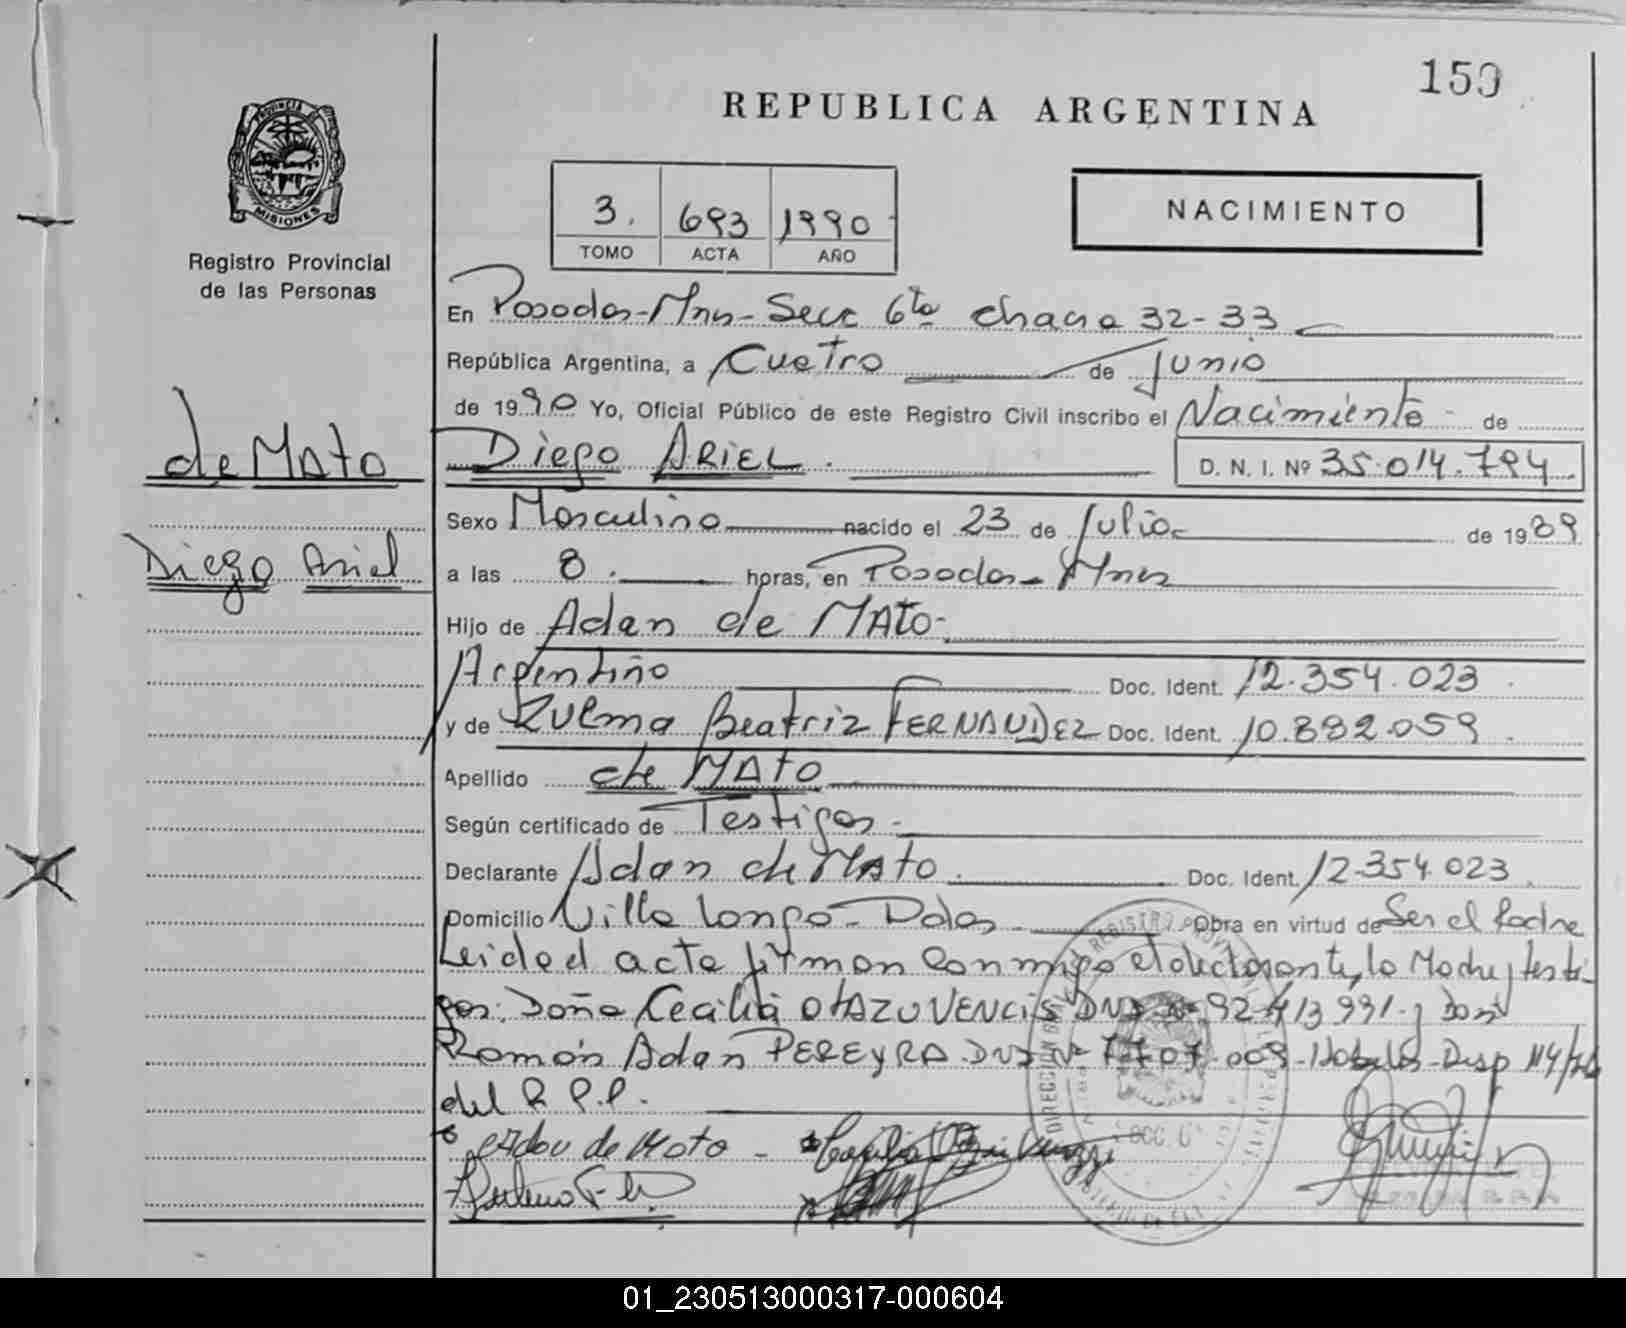 150
REPUBLICA ARGENTINA
PROVINCIA DE
MISIONES
Registro Provincial
de las Personas
3. 693 1990
TOMO ACTA AÑO
NACIMIENTO
En Posadas-Mnes-Secc 6ta chacra 32-33
República Argentina, a Cuatro de Junio
de 1990 Yo, Oficial Público de este Registro Civil inscribo el Nacimiento de
de MAto
Diego ARIEL. D. N. I. Nº 35.014.794
Sexo Masculino nacido el 23 de Julio de 1989
Diego Ariel
a las 8. horas, en Posadas-Mnes
Hijo de Adan de MAto-
Argentino Doc. Ident. 12.354.023
y de Zulma Beatriz FERNANDEZ Doc. Ident. 10.882.059
Apellido de MAto
Según certificado de Testigos-
Declarante Adan de MAto. Doc. Ident. 12.354.023
Domicilio Villa Longa-Pdas Obra en virtud de Ser el Padre
Leida el acta firman conmigo el declarante, la Madre y testi-
gos: Doña Cecilia OTAZU VENCIS DNI Nº 92.413.991-y Don
Ramón Adan PEREYRA-DNI Nº 7.707.009- Disp 114/
del R.P.P.
Adan de Mato -
01_230513000317-000604